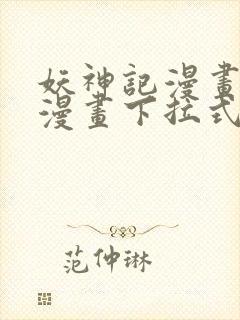 妖神記漫畫
漫畫下拉式
范仲琳